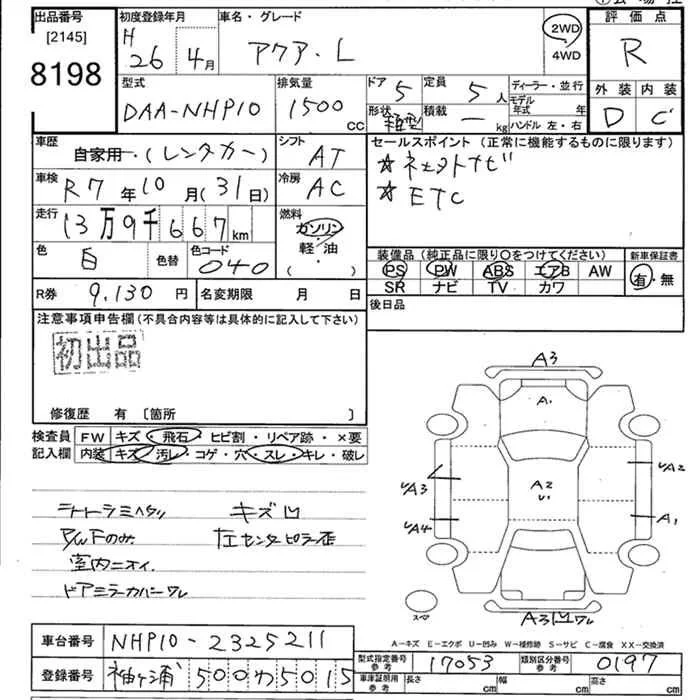 出品番号
[2145]
8198
初度登録年月
H 26 4月
車名・グレード
アクア・L
2WD
4WD
評価点
R
外装 内装
D C
型式
DAA-NHP10
排気量
1500 CC
ドア 5
定員 5人
形状 箱型
積載 — kg
ディーラー・並行
モデル年式 年
ハンドル 左・右
車歴
自家用・(レンタカー)
シフト
AT
車検
R7年10月(31日)
冷房
AC
走行
13万9千667km
燃料
ガソリン
軽・油
( )
色
白
色替
色コード
040
R券 9,130円
名変期限 月 日
セールスポイント (正常に機能するものに限ります)
☆ネクストナビ
☆ETC
装備品 (純正品に限り○をつけてください)
PS PW ABS エアB AW
SR ナビ TV カワ
新車保証書
有・無
後日品
注意事項申告欄 (不具合内容等は具体的に記入して下さい)
初出品
修復歴 有 〔箇所 〕
検査員記入欄
FW キズ・飛石・ヒビ割・リペア跡・×要
内装 キズ・汚レ・コゲ・穴・スレ・キレ・破レ
キズ凹
P/W Fのみ
左センタピラー歪
室内ニオイ
ドアミラーカバーワレ
A3
A1
A2
U1
UA3
UA4
UA2
A1
スペア
A3凹ワレ
A-キズ E-エクボ U-凹み W-補修跡 S-サビ C-腐食 XX-交換済
車台番号
NHP10-2325211
登録番号
袖ヶ浦 500わ5015
型式指定番号 参考
17053
類別区分番号 参考
0197
車庫証明用 参考
長さ cm
幅 cm
高さ cm